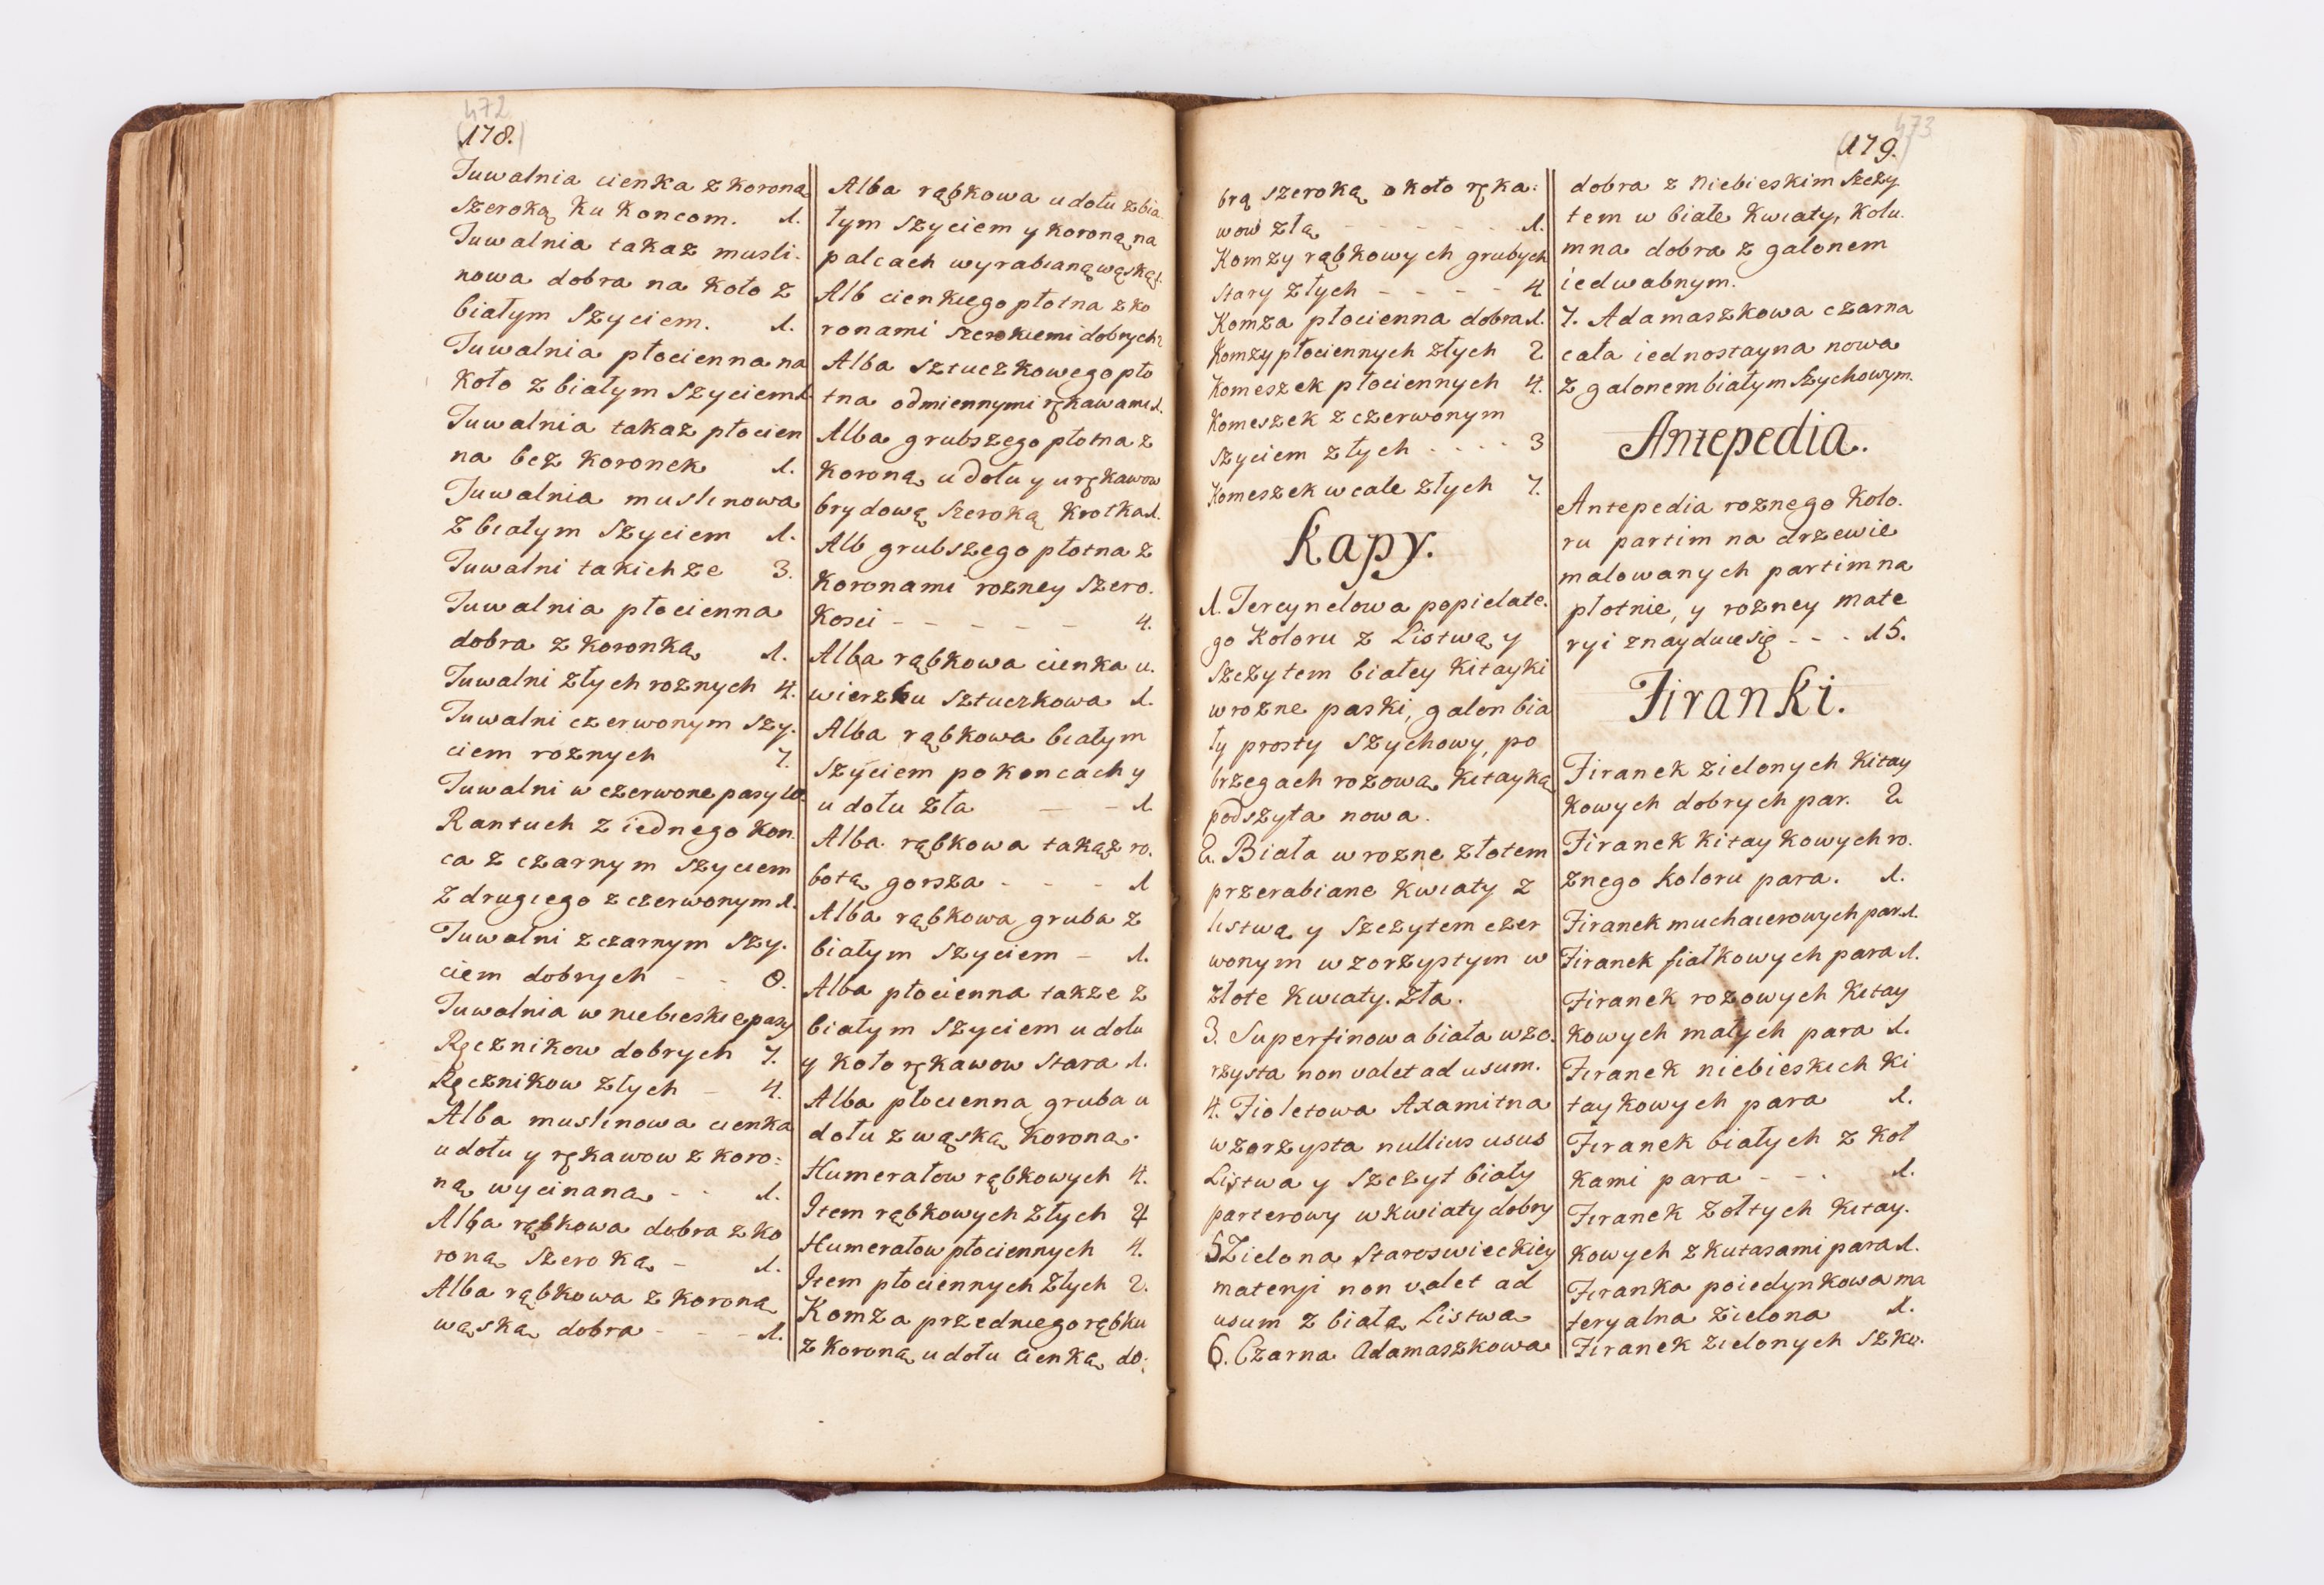 472
(178.)
Tuwalnia cienka z koroną
szeroką ku koncom. 1.
Tuwalnia takaz musli-
nowa dobra na koło z
białym szyciem. 1.
Tuwalnia płocienna na
koło z białym szyciem 1.
Tuwalnia takaz płocien
na bez koronek 1.
Tuwalnia muslinowa
z białym szyciem 1.
Tuwalni takichze 3.
Tuwalnia płocienna
dobra z koronką 1.
Tuwalni złych roznych 4.
Tuwalni czerwonym szy-
ciem roznych 7.
Tuwalni w czerwone pasy 10.
Rantuch z iednego kon-
ca z czarnym szyciem
z drugiego z czerwonym 1.
Tuwalni z czarnym szy-
ciem dobrych - - 8.
Tuwalnia w niebieskie pasy
Ręcznikow dobrych 7.
Ręcznikow złych - 4.
Alba muslinowa cienka
u dołu y rękawow z koro=
ną wycinaną - - 1.
Alba rąbkowa dobra z ko
roną szeroką - 1.
Alba rąbkowa z koroną
wąską dobra - - - 1.
Alba rąbkowa u dołu z bia-
łym szyciem y koroną na
palcach wyrabianą wąską 1.
Alb cienkiego płotna z ko
ronami szerokiemi dobrych 2
Alba sztuczkowego pło
tna odmiennymi rękawami 1.
Alba grubszego płotna z
koroną u dołu y u rękawow
brydową szeroką krotka 1.
Alb grubszego płotna z
koronami rozney szero-
kosci - - - - - 4.
Alba rąbkowa cienka u-
wierzku sztuczkowa 1.
Alba rąbkowa białym
szyciem po koncach y
u dołu zła - - 1
Alba rąbkowa takąz ro-
botą gorsza - - - 1
Alba rąbkowa gruba z
białym szyciem - 1.
Alba płocienna takze z
białym szyciem u dołu
y koło rękawow stara 1.
Alba płocienna gruba u
dołu z wąską koroną.
Humerałow rąbkowych 4.
Item rąbkowych złych 4
Humerałow płociennych 4.
Item płociennych złych 2.
Komza przedniego rąbku
z koroną u dołu cienką do:
473
(179.)
brą szeroką około ręka:
wow zła - - - - - - 1.
Komzy rąbkowych grubych
stary złych - - - - 4
Komza płocienna dobra 1.
Komzy płociennych złych 2
Komeszek płociennych 4.
Komeszek z czerwonym
szyciem złych - - - - 3
Komeszek wcale złych 7.
Kapy.
1. Tercynelowa popielate-
go koloru z Listwą y
szczytem białey kitayki
w rozne paski, galon bia
ły prosty szychowy, po
brzegach rozową kitayką
podszyta nowa.
2. Biała w rozne złotem
przerabiane kwiaty z
listwą y szczytem czer
wonym wzorzystym w
złote kwiaty. zła.
3. Superfinowa biała wzo-
rzysta non valet ad usum.
4. Fioletowa Axamitna
wzorzysta nullius usus
Listwa y szczyt biały
parterowy w kwiaty dobry
5 Zielona staroswieckiey
materyi non valet ad
usum z białą Listwą
6. Czarna Adamaszkowa
dobra z niebieskim szczy
tem w białe kwiaty, kolu-
mna dobra z galonem
iedwabnym.
7. Adamaszkowa czarna
cała iednostayna nowa
z galonem białym szychowym.
Antepedia.
Antepedia roznego kolo-
ru partim na drzewie
malowanych partim na
płotnie, y rozney mate
ryi znayduie się - - - 15.
Firanki.
Firanek zielonych kitay
kowych dobrych par. 2
Firanek kitaykowych ro-
znego koloru para. 1.
Firanek muchaierowych par. 1.
Firanek fiałkowych para 1.
Firanek rozowych kitay
kowych małych para 1.
Firanek niebieskich ki
taykowych para 1.
Firanek białych z koł
kami para - - - 1.
Firanek zołtych kitay-
kowych z kutasami para 1.
Firanka poiedynkowa ma
teryalna zielona 1.
Firanek zielonych szko-